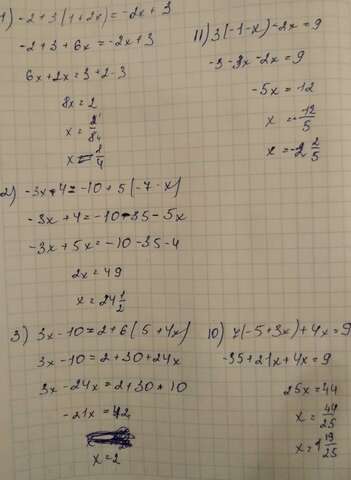 1) -2+3(1+2x)=-2x+3
-2+3+6x=-2x+3
6x+2x=3+2-3
8x=2
x=2/8
x=1/4
2) -3x+4=-10+5(-7-x)
-3x+4=-10-35-5x
-3x+5x=-10-35-4
2x=49
x=24 1/2
3) 3x-10=2+6(5+4x)
3x-10=2+30+24x
3x-24x=2+30+10
-21x=42
x=2
11) 3(-1-x)-2x=9
-3-3x-2x=9
-5x=12
x=-12/5
x=-2 2/5
10) 7(-5+3x)+4x=9
-35+21x+4x=9
25x=44
x=44/25
x=1 19/25